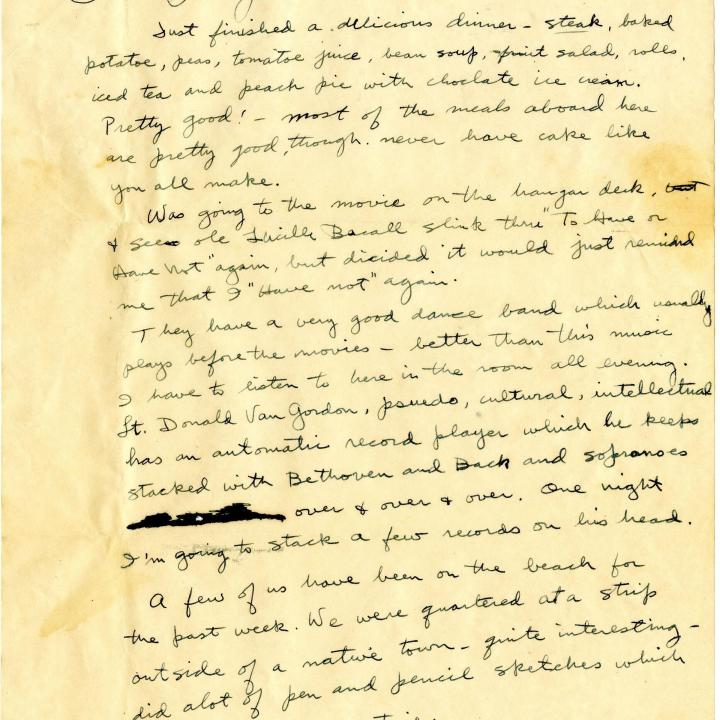 Just finished a delicious dinner - steak, baked
potatoe, peas, tomatoe juice, bean soup, fruit salad, rolls,
iced tea and peach pie with choclate ice cream.
Pretty good! - most of the meals aboard here
are pretty good, though. never have cake like
you all make.
Was going to the movie on the hangar deck, but
& see ole Lucille Bacall slink thru "To Have or
Have Not" again, but decided it would just remind
me that I "Have not" again.
They have a very good dance band which usually
plays before the movies - better than this music
I have to listen to here in the room all evening.
Lt. Donald Van Gordon, psuedo, cultural, intellectual
has an automatic record player which he keeps
stacked with Bethoven and Bach and sopranoes
over & over & over. One night
I'm going to stack a few records on his head.
A few of us have been on the beach for
the past week. We were quartered at a strip
outside of a native town - quite interesting -
did alot of pen and pencil sketches which